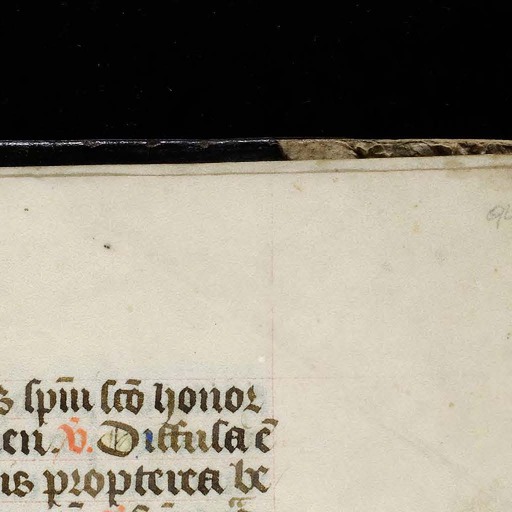 s sp̄m sc̄o honor
en. V̄. Diffusa ē
is propterea be